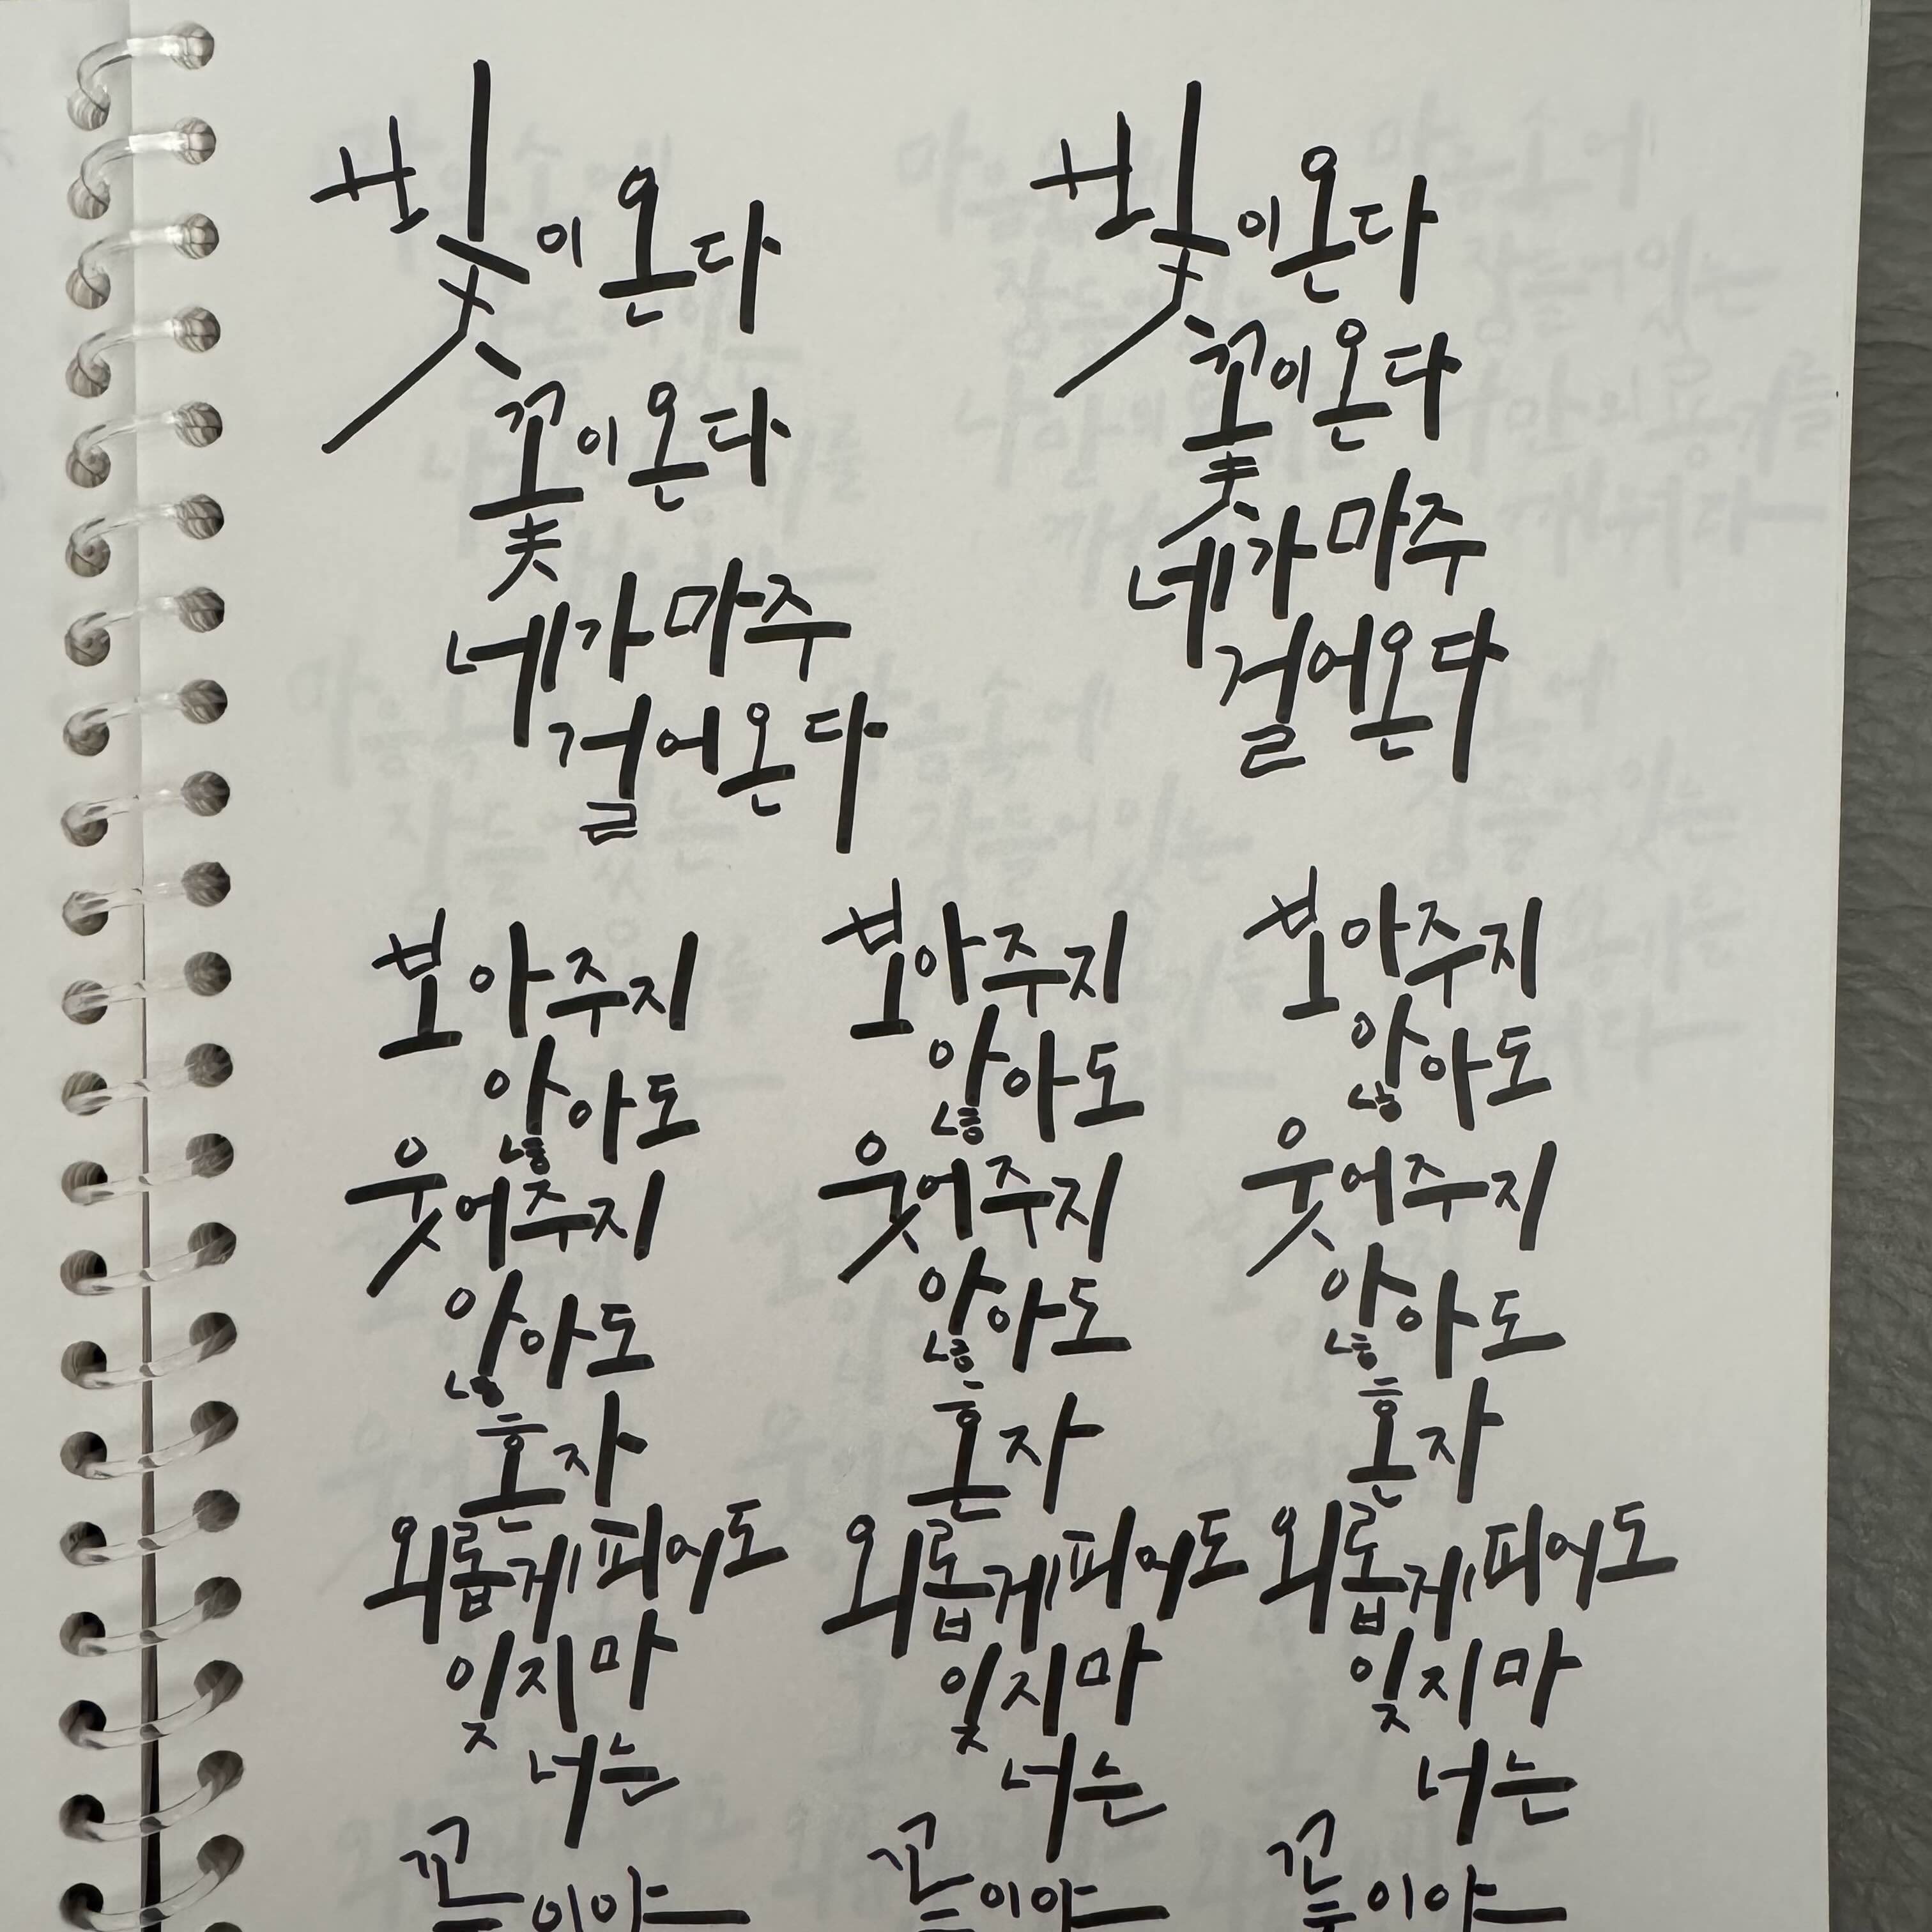 빛이 온다
꽃이 온다
네가 마주
걸어온다
빛이 온다
꽃이 온다
네가 마주
걸어온다
보아주지
않아도
웃어주지
않아도
혼자
외롭게 피어도
잊지마
너는
꽃이야
보아주지
않아도
웃어주지
않아도
혼자
외롭게 피어도
잊지마
너는
꽃이야
보아주지
않아도
웃어주지
않아도
혼자
외롭게 피어도
잊지마
너는
꽃이야